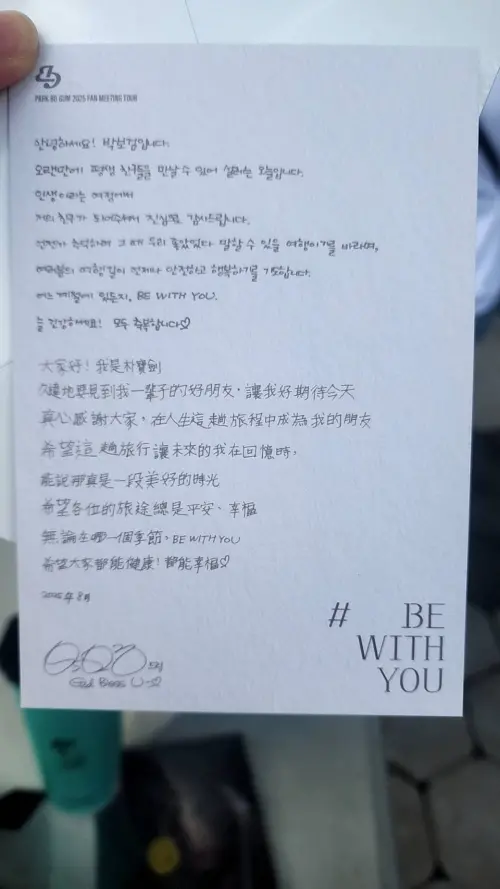 PARK BO GUM 2025 FAN MEETING TOUR
안녕하세요! 박보검입니다.
오랜만에 평생 친구들을 만날 수 있어 설레는 오늘입니다.
인생이라는 여정에서
저의 친구가 되어주셔서 진심으로 감사드립니다.
언젠가 추억하며 그 때 우리 좋았었다 말할 수 있을 여행이기를 바라며,
여러분의 여행길이 언제나 안전하고 행복하기를 기도합니다.
어느 계절에 있든지, BE WITH YOU.
늘 건강하세요! 모두 축복합니다♡
大家好! 我是朴寶劍
久違地要見到我一輩子的好朋友, 讓我好期待今天
真心感謝大家, 在人生這趟旅程中成為我的朋友
希望這趟旅行讓未來的我在回憶時,
能說那真是一段美好的時光
希望各位的旅途總是平安、幸福
無論在哪一個季節, BE WITH YOU
希望大家都能健康! 都能幸福♡
2025年 8月
God Bless U~♡
# BE
WITH
YOU